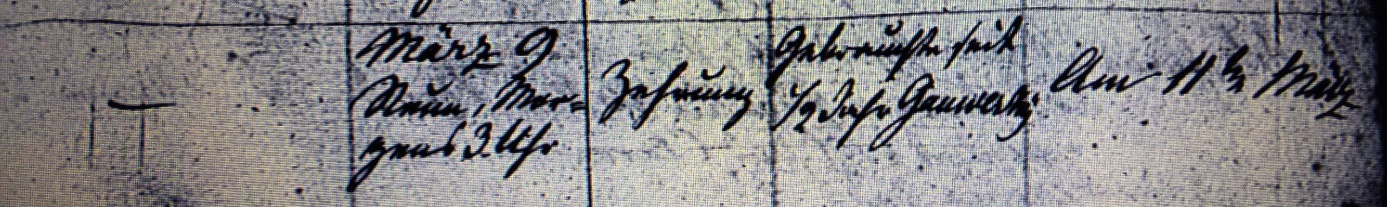 März 9
Neun, Mor=
gens 3 Uhr
Zehrung
Gebrauchte seit
1/2 Jahr
Am 11ten März